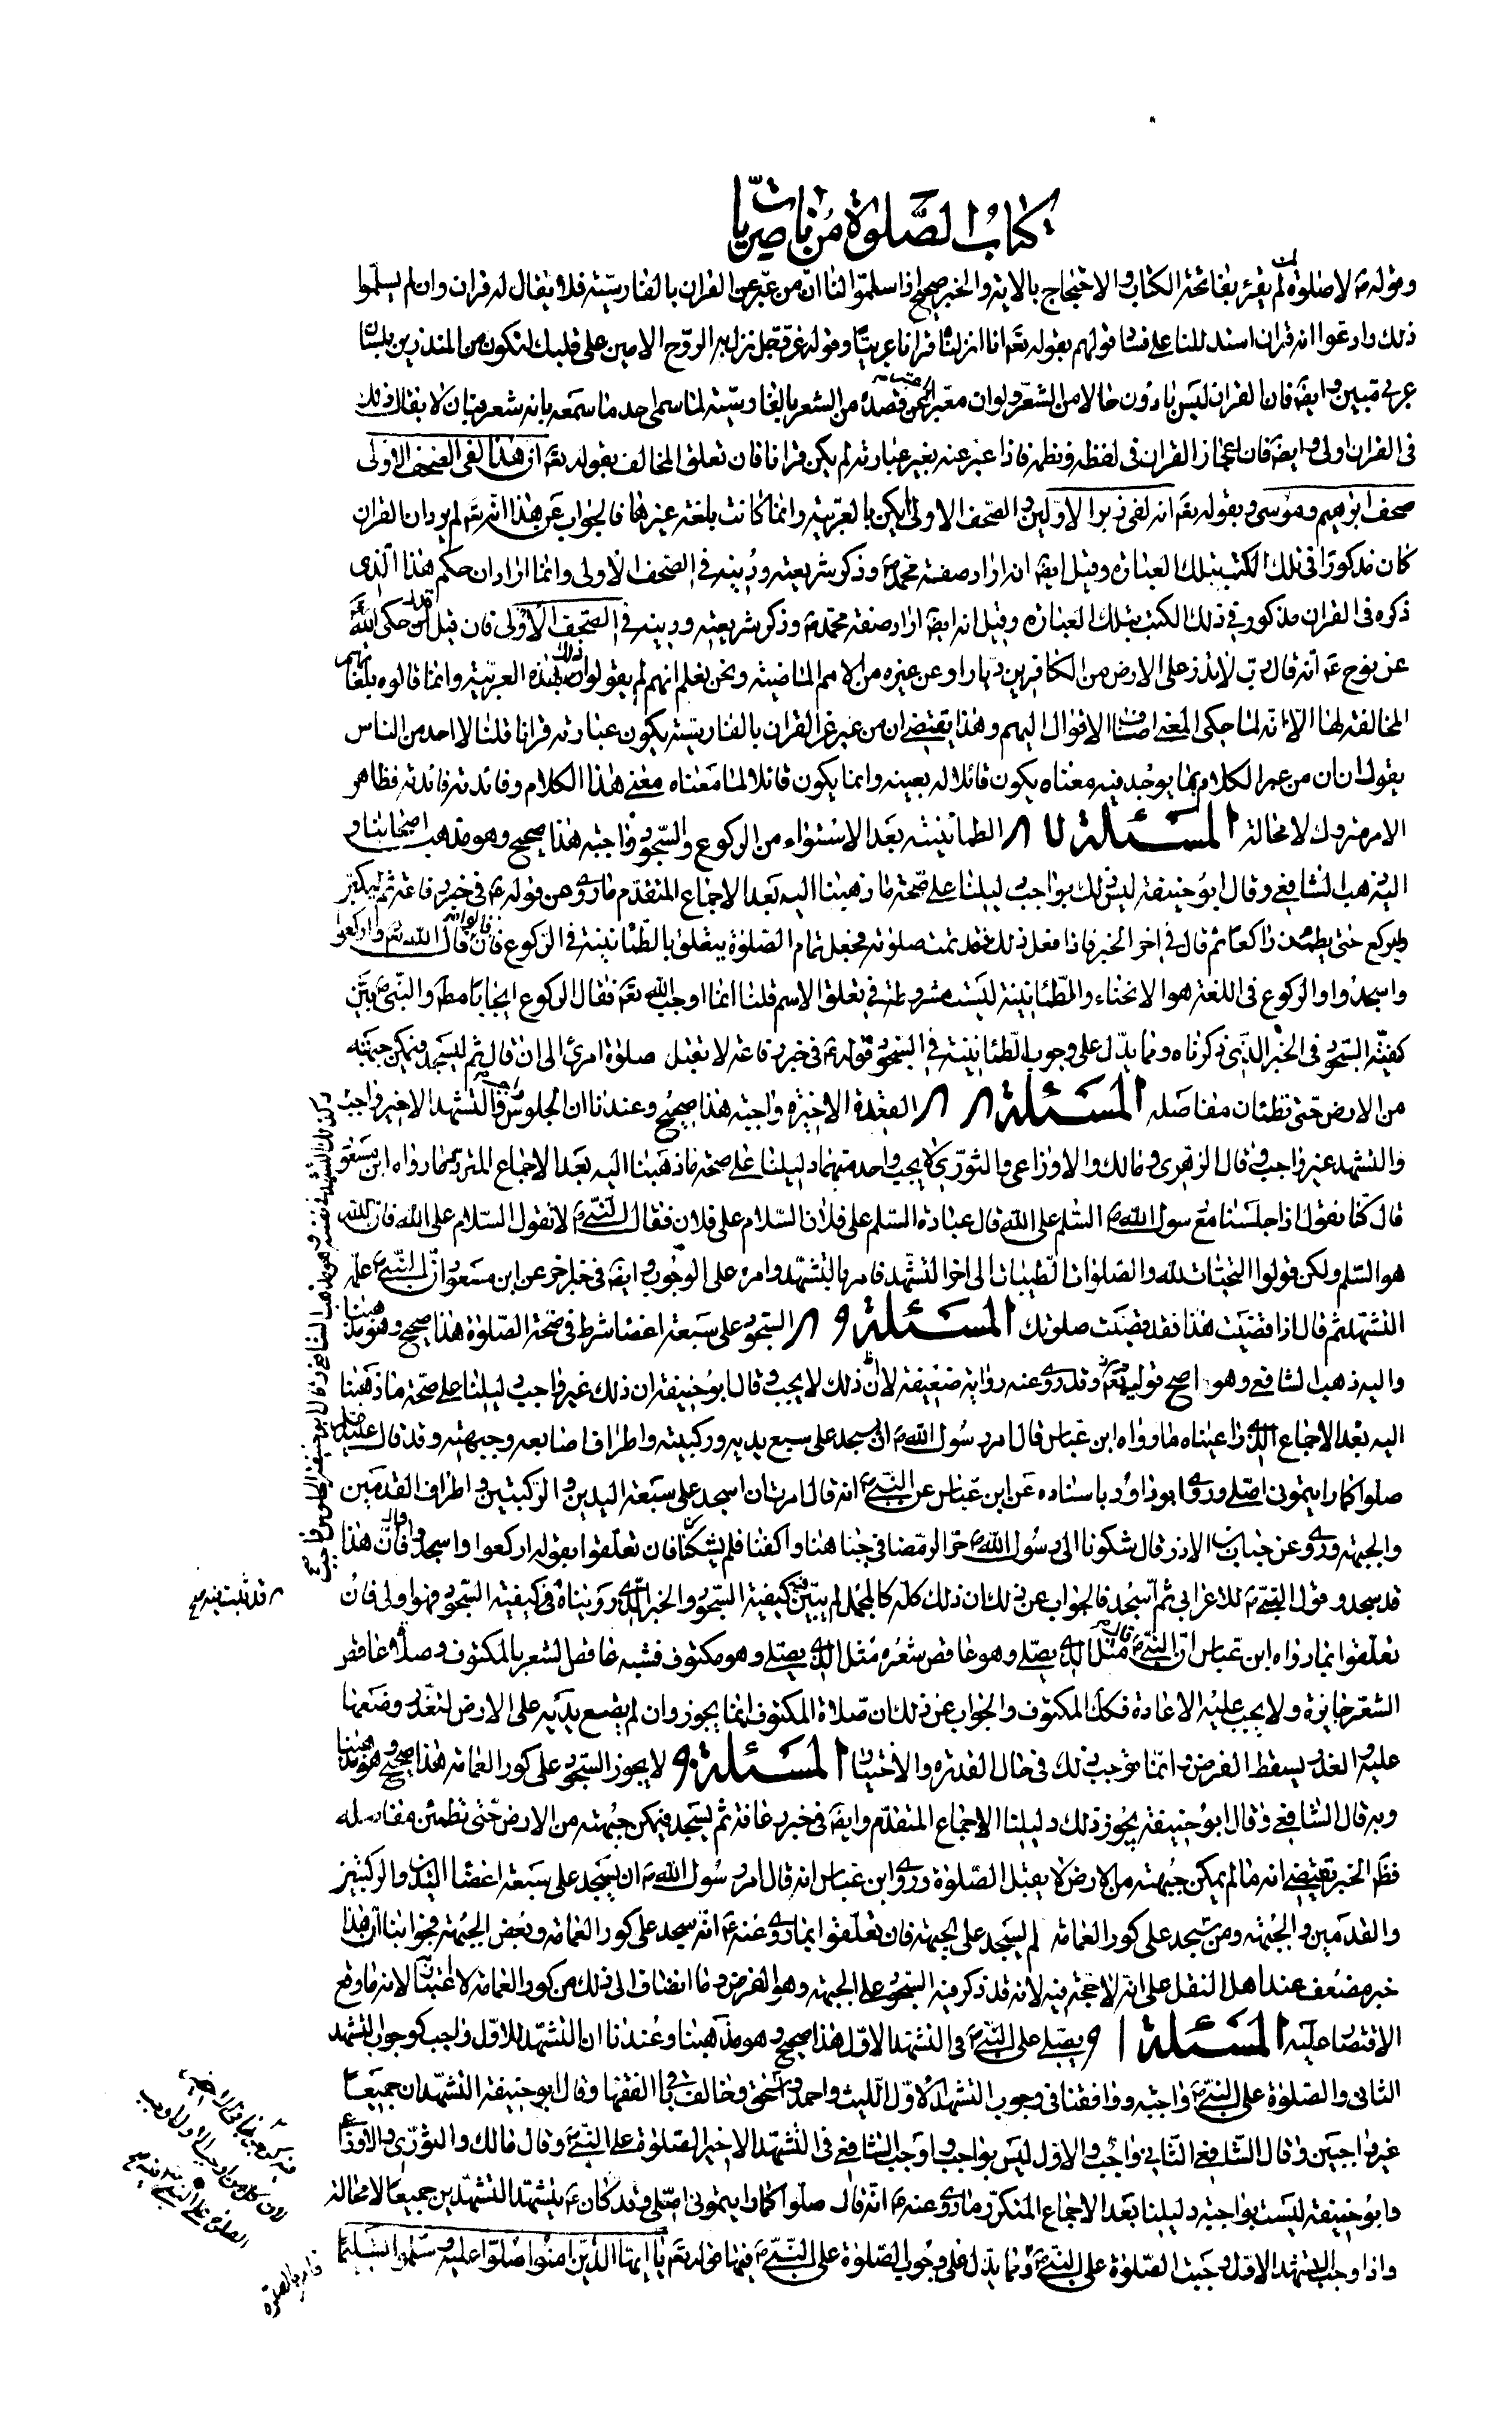 كتاب الصلوة من ناصريات
وقوله ع لا صلوة لمن لم يقرء بفاتحة الكتاب والاحتجاج بالاية والخبر صحيح اذا سلموا لنا ان من عبر عن القران بالفارسية فلا يقال له قران وان لم يسلموا
ذلك وادعوا انه قران استدللنا على فساد قولهم بقوله تع انا انزلناه قرانا عربيا وقوله عز وجل نزل به الروح الامين على قلبك لتكون من المنذرين بلسان
عربي مبين وايضا فان القران ليس بادون حالا من الشعر ولو ان معبرا عبر عن قصيدة من الشعر بالفارسية لما سمى احد ما سمعه بانه شعر فبان لا يقال ذلك
في القران اولى وايضا فان اعجاز القران في لفظه ونظمه فاذا عبر عنه بغير عبارته لم يكن قرانا فان تعلق المخالف بقوله تع ان هذا لفي الصحف الاولى
صحف ابراهيم وموسى وبقوله تع انه لفي زبر الاولين والصحف الاولى لم يكن بالعربية وانما كانت بلغة غيرها فالجواب عن هذا انه تع لم يرد ان القران
كان مذكورا في تلك الكتب بتلك العبارة وقيل ايضا انه اراد صفة محمد ص وذكر شريعته ودينه في الصحف الاولى وانما اراد ان حكم هذا الذي
ذكره في القران مذكور في ذلك الكتب بتلك العبارة وقيل انه ايضا اراد صفة محمد ص وذكر شريعته ودينه في الصحف الاولى فان قيل اليس قد حكى الله تع
عن نوح ع انه قال رب لا تذر على الارض من الكافرين ديارا وعن غيره من الامم الماضية ونحن نعلم انهم لم يقولوا ذلك بهذه العربية وانما قالوه بلغاتهم
المخالفة لها الا انه لما حكى المعنى اضاف الاقوال اليهم وهذا يقتضي ان من عبر عن القران بالفارسية يكون عبارته قرانا قلنا لا احد من الناس
يقول ان من عبر الكلام بما يوجد فيه معناه يكون قائلا له بعينه وانما يكون قائلا لما معناه معنى هذا الكلام وفائدته فائدته فظاهر
الامر متروك لا محالة المسئلة ٨٧ الطمأنينة بعد الاستواء من الركوع والسجود واجبة هذا صحيح وهو مذهب اصحابنا و
اليه ذهب الشافعي وقال ابو حنيفة ليس ذلك بواجب دليلنا على صحة ما ذهبنا اليه بعد الاجماع المتقدم ما روي من قوله ع في خبر رفاعة ثم ليكبر
وليركع حتى يطمئن راكعا ثم قال في اخر الخبر فاذا فعل ذلك فقد تمت صلوته فجعل تمام الصلوة يتعلق بالطمأنينة في الركوع فان قالوا قد قال الله تع واركعوا
واسجدوا والركوع في اللغة هو الانحناء والطمأنينة ليست مشروطة في تعلق الاسم قلنا انما اوجب الله تع فقال الركوع ايجابا مطم والنبي ص بين
كيفية السجود في الخبر الذي ذكرناه ومما يدل على وجوب الطمأنينة في السجود قوله ع في خبر رفاعة لا تقبل صلوة امرئ الى ان قال ثم ليسجد فيمكن جبهته
من الارض حتى تطمئن مفاصله المسئلة ٨٨ القعدة الاخيرة واجبة هذا صحيح وعندنا ان الجلوس في التشهد الاخير واجب
والتشهد غير واجب وقال الزهري ومالك والاوزاعي والثوري لا يجب واحد منهما دليلنا على صحة ما ذهبنا اليه بعد الاجماع المتردد ما رواه ابن مسعود
قال كنا نقول اذا جلسنا مع رسول الله ص السلم على الله قال عبادة السلم على فلان السلام على فلان فقال النبي ص لا تقول السلام على الله فان الله
هو السلم ولكن قولوا التحيات لله والصلوات الطيبات الى اخر التشهد فامر بالتشهد وامره على الوجوب وايضا في خبر اخر عن ابن مسعود ان النبي ص علمه
التشهد ثم قال اذا قضيت هذا فقد قضيت صلوتك المسئلة ٨٩ السجود على سبعة اعضا شرط في صحة الصلوة هذا صحيح وهو مذهبنا
واليه ذهب الشافعي وهو اصح قوليه وقد روي عنه رواية ضعيفة لان ذلك لا يجب وقال ابو حنيفة ان ذلك غير واجب دليلنا على صحة ما ذهبنا
اليه بعد الاجماع الذي راعيناه ما رواه ابن عباس قال امر رسول الله ص ان يسجد على سبع يديه وركبتيه واطراف اصابعه وجبهته وقد قال عليه
صلوا كما رايتموني اصلي وروى ابو داود باسناده عن ابن عباس عن النبي ص انه قال امرت ان اسجد على سبعة اليدين والركبتين واطراف القدمين
والجبهة وروي عن خباب بن الارت قال شكونا الى رسول الله ص حر الرمضا في جباهنا واكفنا فلم يشكنا فان تعلقوا بقوله اركعوا واسجدوا وان هذا
قد سجد وقول النبي ص للاعرابي ثم اسجد فالجواب عن ذلك ان ذلك كله كالمجمل لم يبين فيه كيفية السجود والخبر الذي رويناه في كيفية السجود فهو اولى فان
تعلقوا بما رواه ابن عباس ان النبي ص قال مثل الذي يصلي وهو عاقص شعره مثل الذي يصلي وهو مكتوف فشبه عاقص الشعر بالمكتوف وصلاة عاقص
الشعر جايزة ولا يجب عليه الاعادة فكذلك المكتوف والجواب عن ذلك ان صلاة المكتوف انما يجوز وان لم يضع يديه على الارض لتعذر وضعها
عليه والعذر يسقط الفرض وانما نوجب ذلك في حال القدرة والاختيار المسئلة ٩٠ لا يجوز السجود على كور العمامة هذا صحيح وهو مذهبنا
وبه قال الشافعي وقال ابو حنيفة يجوز ذلك دليلنا الاجماع المتقدم وايضا في خبر رفاعة ثم يسجد فيمكن جبهته من الارض حتى تطمئن مفاصله
فظم الخبر يقتضي انه ما لم يمكن جبهته من الارض لا يقبل الصلوة وروى ابن عباس انه قال امر رسول الله ص ان يسجد على سبعة اعضا اليدين والركبتين
والقدمين والجبهة ومن سجد على كور العمامة لم يسجد على الجبهة فان تعلقوا بما روي عنه ع انه سجد على كور العمامة وبعض الجبهة فجوابنا ان هذا
خبر مضعف عند اهل النقل على انه لا حجة فيه لانه قد ذكر فيه السجود على الجبهة وهو الفرض وما انضاف الى ذلك من كور العمامة لا اعتبار لانه ما وقع
الاقتصار عليه المسئلة ٩١ ويصلي على النبي ص في التشهد الاول هذا صحيح وهو مذهبنا وعندنا ان التشهد الاول واجب كوجوب التشهد
الثاني والصلوة على النبي ص واجبة ووافقنا في وجوب التشهد الاول الليث واحمد واسحق وخالف باقي الفقها وقال ابو حنيفة التشهدان جميعا
غير واجبين وقال الشافعي الثاني واجب والاول ليس بواجب واوجب الشافعي في التشهد الاخير الصلوة على النبي ص وقال مالك والثوري والاوزاعي
وابو حنيفة ليست بواجبة دليلنا بعد الاجماع المتكرر ما روي عنه ع انه قال صلوا كما رايتموني اصلي وقد كان ع يتشهد التشهدين جميعا لا محالة
واذا وجب التشهد الاول وجبت الصلوة على النبي ص ومما يدل على وجوب الصلوة على النبي ص فيهما قوله تع يا ايها الذين امنوا صلوا عليه وسلموا تسليما
وكذلك التشهد نفسه وهو مذهب الشافعي وقال ابو حنيفة الجلوس واجب
قد ثبت فيه
لان كل من اوجب الاول اوجب
الصلوة على النبي فيه
فامر بالصلوة